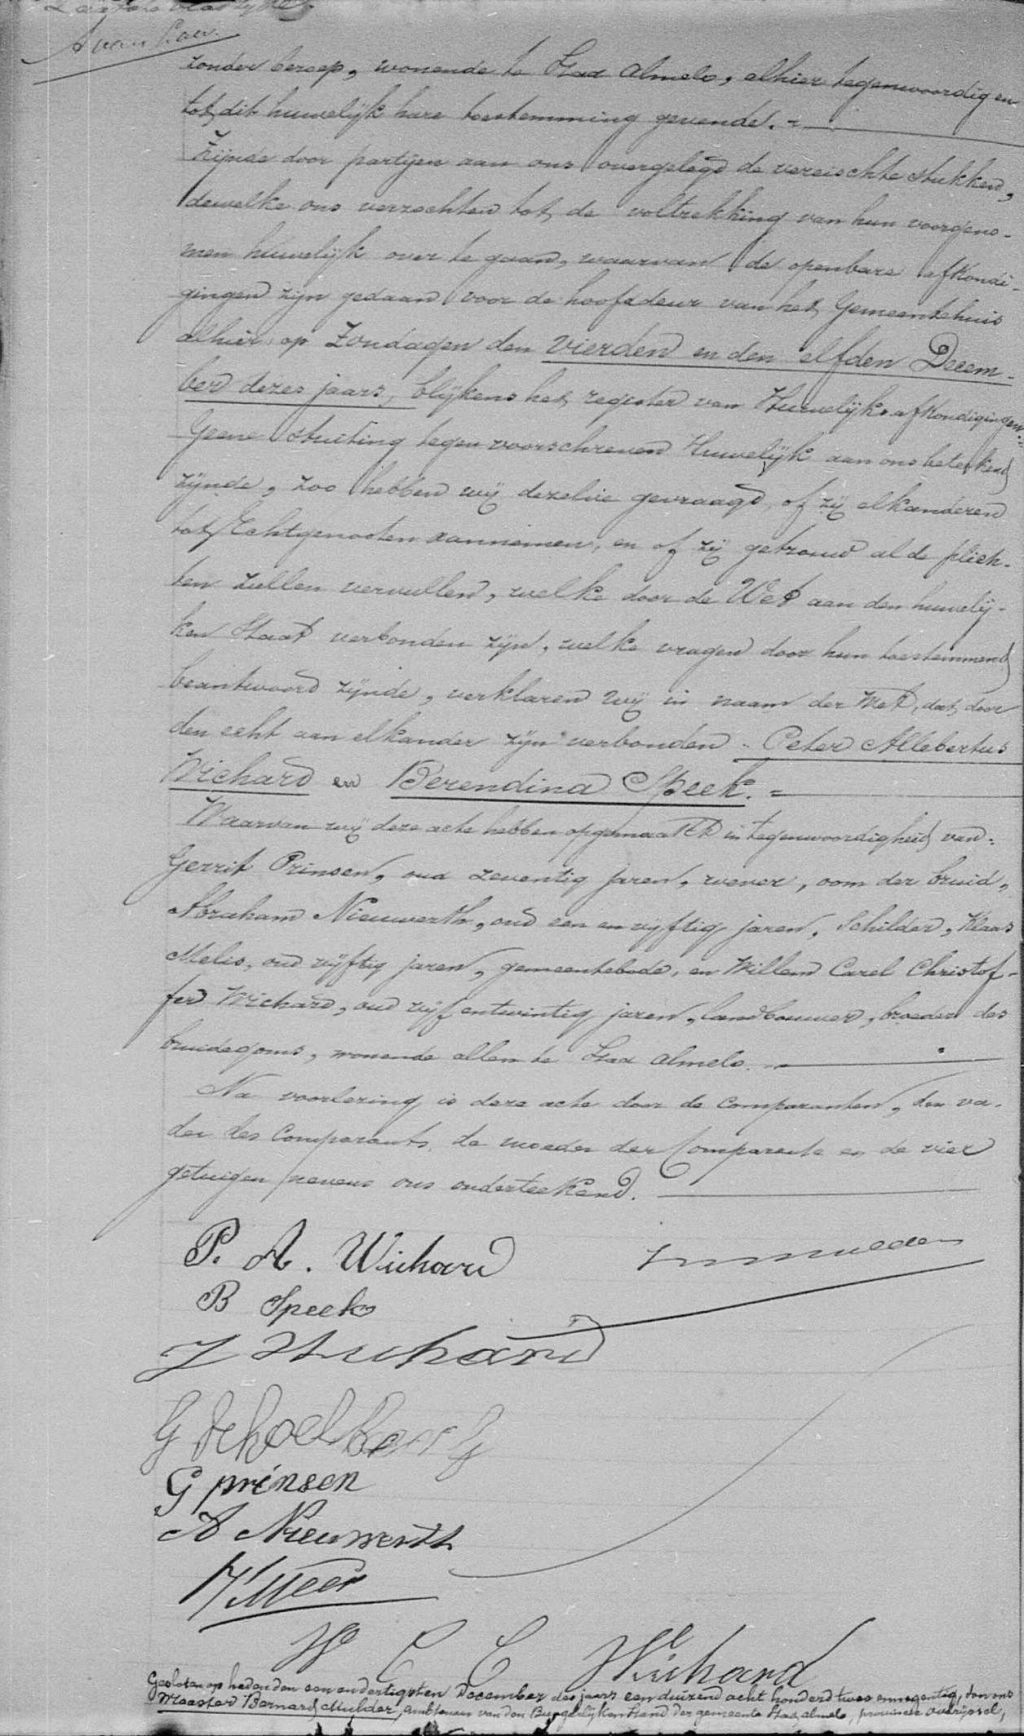 A van
zonder beroep, wonende te Stad Almelo, alhier tegenwoordig en
tot dit huwelijk hare toestemming gevende. =
Zijnde door partijen aan ons overgelegd de vereischte stukken,
dewelke ons verzochten tot de voltrekking van hun voorgeno-
men huwelijk over te gaan, waarvan de openbare afkondi-
gingen zijn gedaan voor de hoofddeur van het Gemeentehuis
alhier op Zondagen den vierden en den elfden Decem-
ber dezes jaars, blijkens het register van Huwelijksafkondigingen.
Geene stuiting tegen voorschreven Huwelijk aan ons beteekend
zijnde, zoo hebben wij dezelve gevraagd, of zij elkanderen
tot Echtgenooten aannemen, en of zij getrouw al de plich-
ten zullen vervullen, welke door de Wet aan den huwelij-
ken Staat verbonden zijn, welke vragen door hun toestemmend
beantwoord zijnde, verklaren wij in naam der Wet, dat door
den echt aan elkander zijn verbonden - Peter Allebertus
Wichard en Berendina Speek. =
Waarvan wij deze acte hebben opgemaakt in tegenwoordigheid van:
Gerrit Prinsen, oud zeventig jaren, wever, oom der bruid,
Abraham Nieuwerth, oud een en vijftig jaren, Schilder, Klaas
Meles, oud vijftig jaren, gemeentebode, en Willem Carel Christof-
fer Wichard, oud vijf entwintig jaren, landbouwer, broeder des
bruidegoms, wonende allen te Stad Almelo.
Na voorlezing is deze acte door de Comparanten, den va-
der des Comparants, de moeder der Comparante en de vier
getuigen nevens ons onderteekend.
P. A. Wichard
Mulder
B Speek
J Wichard
G
G prinsen
A Nieuwerth
W C C Wichard
Gesloten op heden den eenendertigsten December des jaars eenduizend acht honderd twee ennegentig, door ons
Meester Bernard Mulder, ambtenaar van den Burgerlijken Stand der gemeente Stad almelo, provincie overijssel,